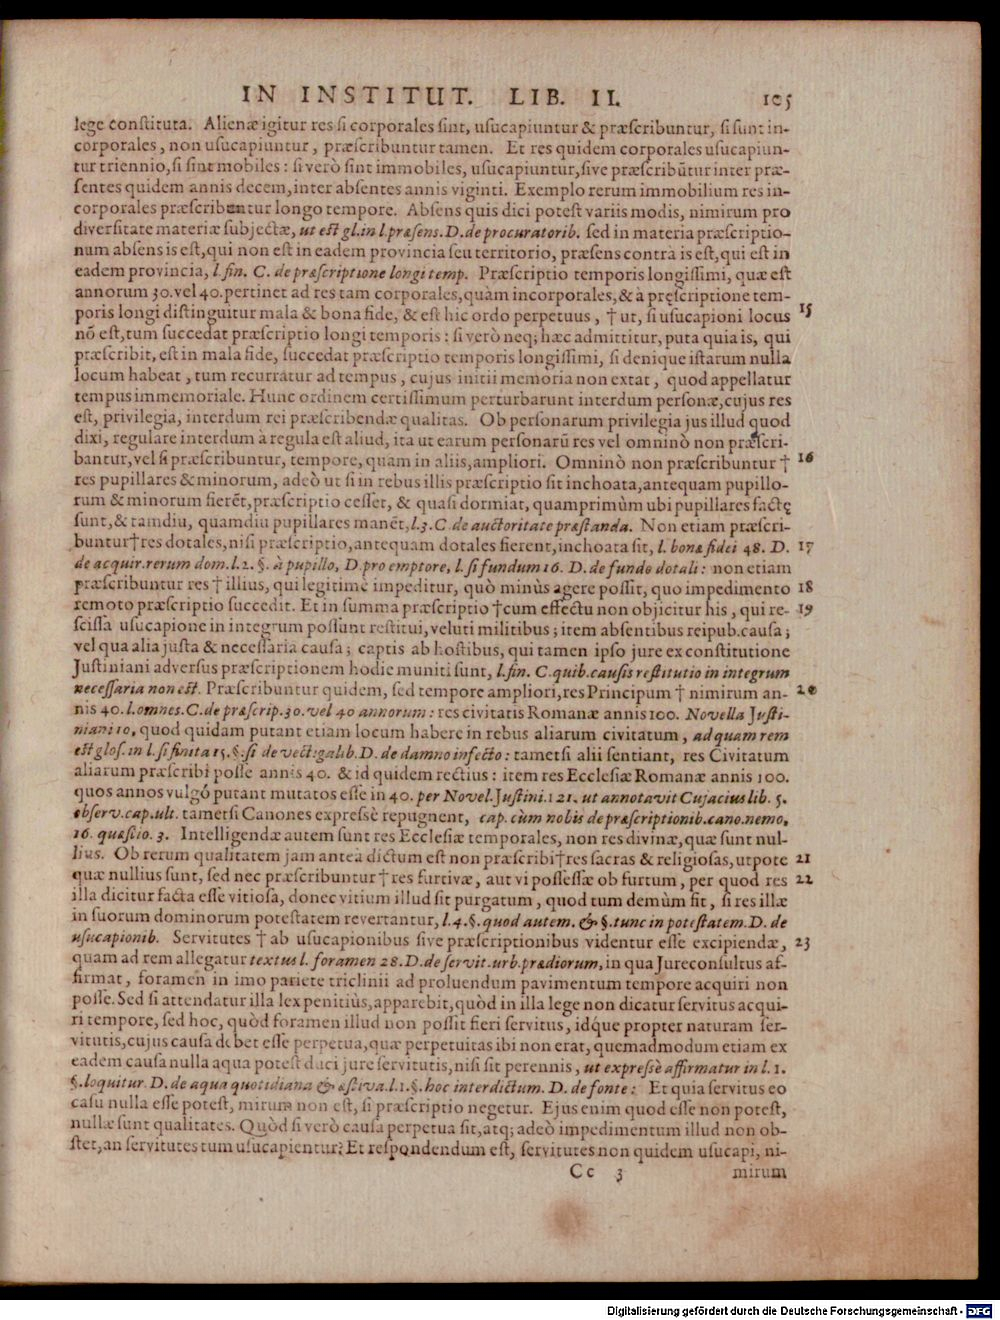 IN INSTITUT. LIB. II. 105
lege constituta. Alienæ igitur res si corporales sint, usucapiuntur & præscribuntur, si sunt in-
corporales, non usucapiuntur, præscribuntur tamen. Et res quidem corporales usucapiun-
tur triennio, si sint mobiles: si verò sint immobiles, usucapiuntur, sive præscribūtur inter præ-
sentes quidem annis decem, inter absentes annis viginti. Exemplo rerum immobilium res in-
corporales præscribuntur longo tempore. Absens quis dici potest variis modis, nimirum pro
diversitate materiæ subjectæ, ut est gl. in l. præsens. D. de procuratorib. sed in materia præscriptio-
num absens is est, qui non est in eadem provincia seu territorio, præsens contrà is est, qui est in
eadem provincia, l. fin. C. de præscriptione longi temp. Præscriptio temporis longissimi, quæ est
annorum 30. vel 40. pertinet ad res tam corporales, quàm incorporales, & à pręscriptione tem-
poris longi distinguitur mala & bona fide, & est hic ordo perpetuus, † ut, si usucapioni locus 15
nō est, tum succedat præscriptio longi temporis: si verò neq; hæc admittitur, puta quia is, qui
præscribit, est in mala fide, succedat præscriptio temporis longissimi, si denique istarum nulla
locum habeat, tum recurratur ad tempus, cujus initii memoria non extat, quod appellatur
tempus immemoriale. Hunc ordinem certissimum perturbarunt interdum personæ, cujus res
est, privilegia, interdum rei præscribendæ qualitas. Ob personarum privilegia jus illud quod
dixi, regulare interdum à regula est aliud, ita ut earum personarū res vel omninò non præscri-
bantur, vel si præscribuntur, tempore, quam in aliis, ampliori. Omninò non præscribuntur † 16
res pupillares & minorum, adeò ut si in rebus illis præscriptio sit inchoata, antequam pupillo-
rum & minorum fierēt, præscriptio cesset, & quasi dormiat, quamprimùm ubi pupillares factę
sunt, & tamdiu, quamdiu pupillares manēt, l. 3. C de auctoritate præstanda. Non etiam præscri-
buntur † res dotales, nisi præscriptio, antequam dotales fierent, inchoata sit, l. bonæ fidei 48. D. 17
de acquir. rerum dom. l. 2. §. à pupillo, D. pro emptore, l. si fundum 16. D. de fundo dotali: non etiam
præscribuntur res † illius, qui legitimè impeditur, quò minùs agere possit, quo impedimento 18
remoto præscriptio succedit. Et in summa præscriptio † cum effectu non objicitur his, qui re- 19
scissa usucapione in integrum possunt restitui, veluti militibus; item absentibus reipub. causa;
vel qua alia justa & necessaria causa; captis ab hostibus, qui tamen ipso jure ex constitutione
Justiniani adversus præscriptionem hodie muniti sunt, l. fin. C. quib. causis restitutio in integrum
necessaria non est. Præscribuntur quidem, sed tempore ampliori, res Principum † nimirum an- 20
nis 40. l. omnes. C. de præscrip. 30. vel 40 annorum: res civitatis Romanæ annis 100. Novella Justi-
niani 10, quod quidam putant etiam locum habere in rebus aliarum civitatum, ad quam rem
est glos. in l. si finita 15. §. si de vectigalib. D. de damno infecto: tametsi alii sentiant, res Civitatum
aliarum præscribi posse annis 40. & id quidem rectius: item res Ecclesiæ Romanæ annis 100.
quos annos vulgó putant mutatos esse in 40. per Novel. Justini. 121. ut annotavit Cujacius lib. 5.
observ. cap. ult. tametsi Canones expressè repugnent, cap. cùm nobis de præscriptionib. cano. nemo,
16. quæstio. 3. Intelligendæ autem sunt res Ecclesiæ temporales, non res divinæ, quæ sunt nul-
lius. Ob rerum qualitatem jam anteà dictum est non præscribi † res sacras & religiosas, utpote 21
quæ nullius sunt, sed nec præscribuntur † res furtivæ, aut vi possessæ ob furtum, per quod res 22
illa dicitur facta esse vitiosa, donec vitium illud sit purgatum, quod tum demùm fit, si res illæ
in suorum dominorum potestatem revertantur, l. 4. §. quod autem. & §. tunc in potestatem. D. de
usucapionib. Servitutes † ab usucapionibus sive præscriptionibus videntur esse excipiendæ, 23
quam ad rem allegatur textus l. foramen 28. D. de servit. urb. prædiorum, in qua Jureconsultus af-
firmat, foramen in imo pariete triclinii ad proluendum pavimentum tempore acquiri non
posse. Sed si attendatur illa lex penitiùs, apparebit, quòd in illa lege non dicatur servitus acqui-
ri tempore, sed hoc, quòd foramen illud non possit fieri servitus, idq́ue propter naturam ser-
vitutis, cujus causa debet esse perpetua, quæ perpetuitas ibi non erat, quemadmodum etiam ex
eadem causa nulla aqua potest duci jure servitutis, nisi sit perennis, ut expressè affirmatur in l. 1.
§. loquitur. D. de aqua quotidiana & æstiva. l. 1. §. hoc interdictum. D. de fonte: Et quia servitus eo
casu nulla esse potest, mirum non est, si præscriptio negetur. Ejus enim quod esse non potest,
nullæ sunt qualitates. Quòd si verò causa perpetua sit, atq; adeò impedimentum illud non ob-
stet, an servitutes tum usucapientur? Et respondendum est, servitutes non quidem usucapi, ni-
Cc 3 mirum
Digitalisierung gefördert durch die Deutsche Forschungsgemeinschaft - DFG